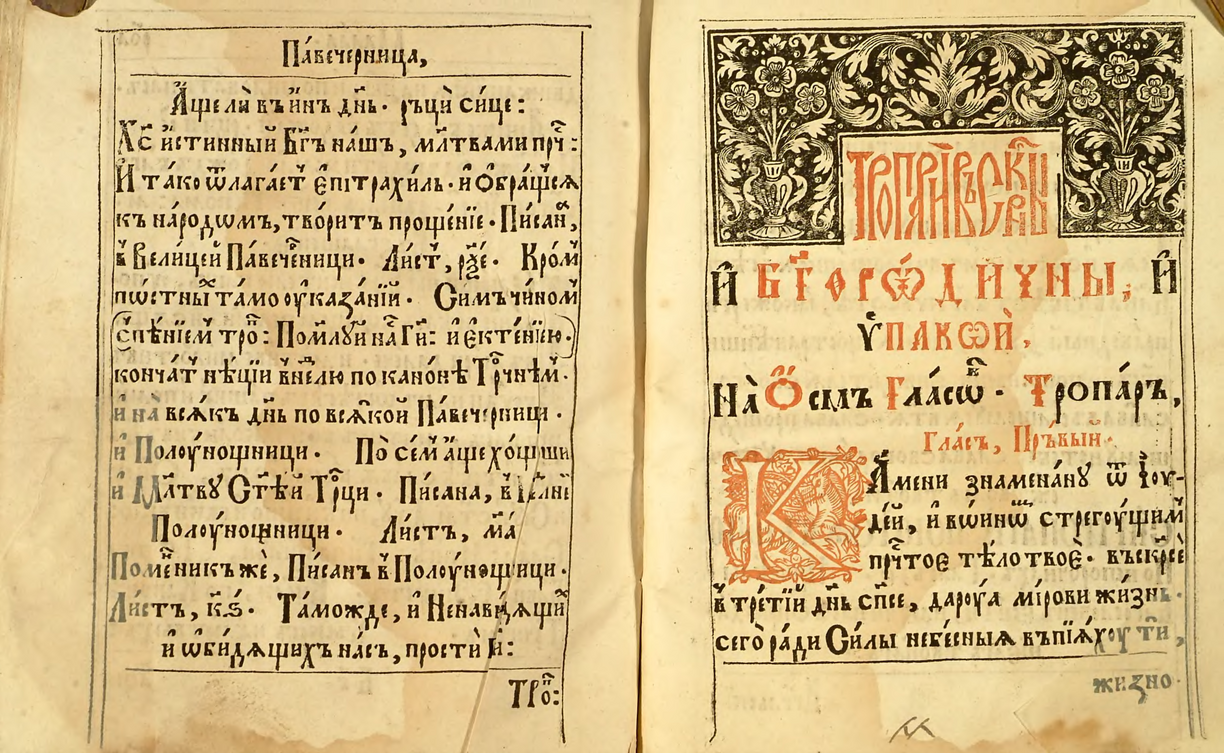 Па́вечерница,
А҆ще ли̑ въ и҆́нъ дн҃ь · ръцѝ си́це :
Хс҃ и҆́стинный Бг҃ъ на́шъ, мл҃твами прч҇ :
И҆ та́ко ѿлага́етъ є҆пітрахи́ль · и҆ ѻ҆браще́сѧ
къ наро́дѡмъ, тво́ритъ проще́нїе · Пи́сан,
в̾ Вели́цей Павече́рници · Ли́ст, рѯ҃е · Кро́м
пѡ́стны́ тамо оу҆каза́нїй · Си́мъ чи́ном
с̾пѣ́нїем тро҇п : Поми́луй на́с Гй҃ : и҆ є҆ктенїею ·
конча́т нѣ́цїи в̾ нл҃ю по кано́нѣ Тро́чнѣм ·
и҆ на̀ всѧ́къ дн҃ь по всѧ́кой Па́вечерници ·
и҆ Полоу́нощници · По се́м а҆́ще хо́щеши
и҆ Мл҃тву Ст҃ѣ́й Трц҃и · Пи́сана, в̾ Нл҃ни
Полоу́нощници · Ли́стъ, м҃а
Поме́нникъ же, Пи́санъ в̾ Полоу́нощници ·
Ли́стъ, к҃ѕ · Та́можде, и҆ Ненави́дѧщи
и҆ ѡ҆би́дѧщихъ на́съ, простѝ Г҃и :
Тро҇п :
ТРОПАРИ ВЪСКРСНЫ
И҆ БГ҃ОРѠ́ДИЧНЫ, И҆
У҆ПАКѠИ̑,
На̀ Ѻ҆́смъ Гла́сѡв · Тропа́ръ,
гла́съ, Пръвый ·
Ка́мени знамена́ну ѿ І҆оу-
де́й, и҆ вѡ́инѡм стрегоу́щим
пр҇чтое тѣ́ло твоѐ · въскр҃се
в̾ тре́тїй дн҃ь сп҃се, дароу́ѧ мі́рови жи́знь ·
сего̀ ра́ди Си́лы небе́сныѧ въпїѧ́хоу тѝ,
жизно ·